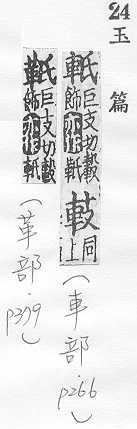 24
玉篇
軝巨支切轂飾亦作
同上
(車部.p266)
巨支切轂飾亦作軝
(革部.p379)